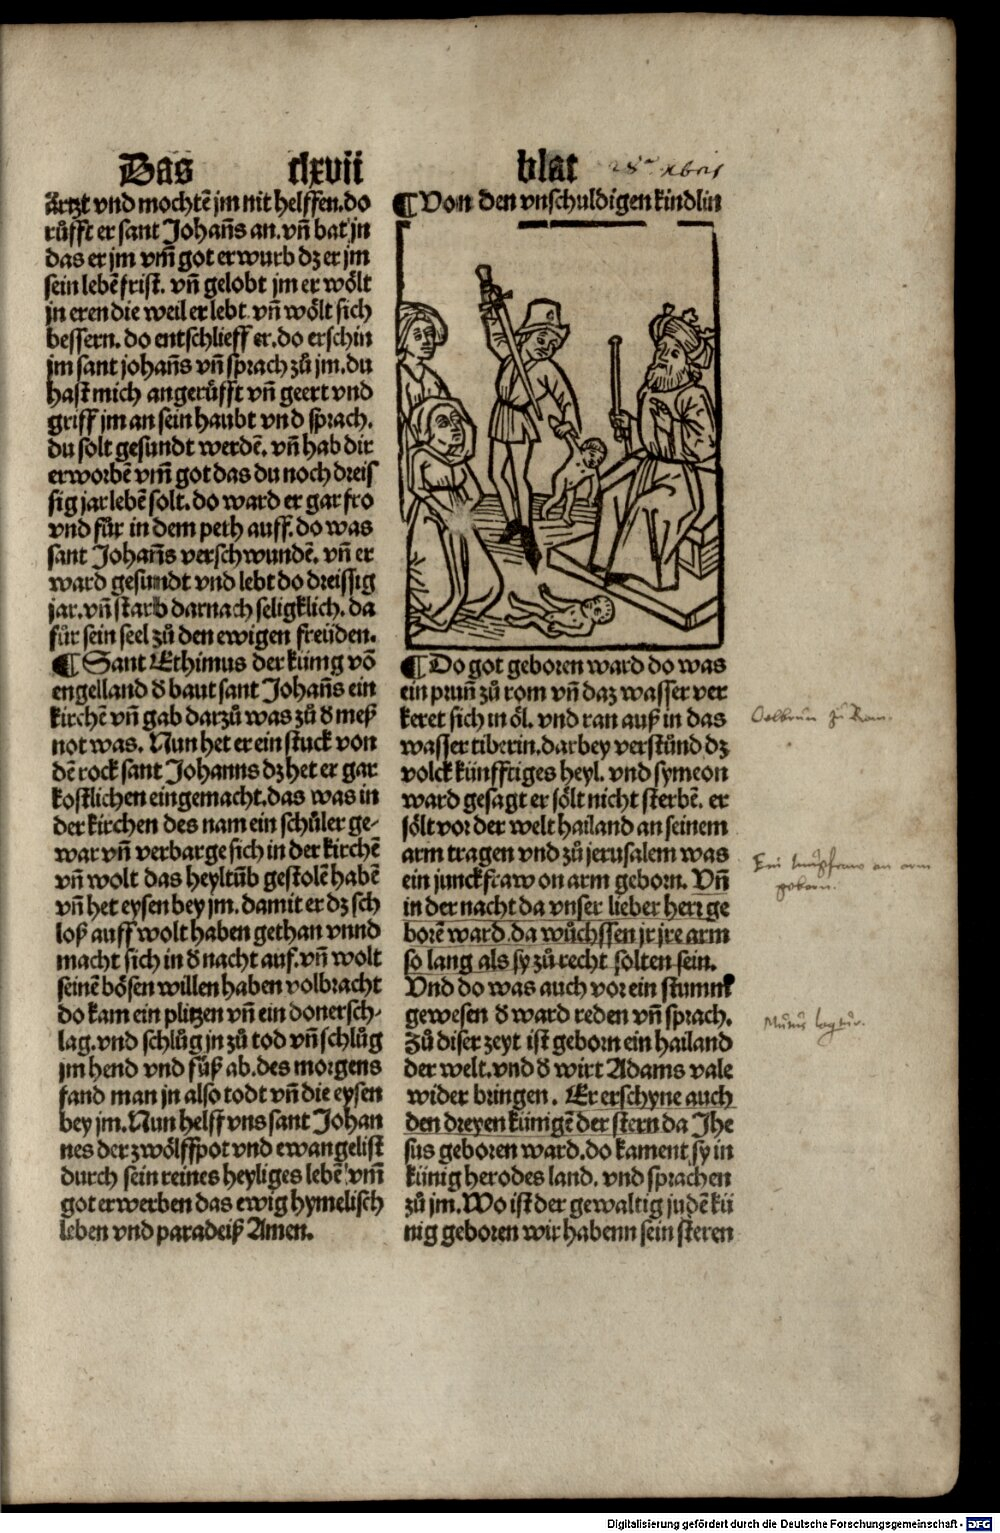 Das clxvii blat
ärtzt vnd mochtẽ jm nit helffen.do
růfft er sant Johañs an.vñ bat jn
das er jm vm̃ got erwurb dz er jm
sein lebẽ frist. vñ gelobt jm er wölt
jn eren die weil er lebt vñ wölt sich
bessern. do entschlieff er.do erschin
jm sant johañs vñ sprach zů jm.du
hast mich angerůfft vñ geert vnd
griff jm an sein haubt vnd sprach.
du solt gesundt werdẽ. vñ hab dir
erworbẽ vm̃ got das du noch dreis
sig jar lebẽ solt. do ward er gar fro
vnd fůr in dem peth auff.do was
sant Johañs verschwundẽ. vñ er
ward gesundt vnd lebt do dreissig
jar.vñ starb darnach seligklich. da
fůr sein seel zů den ewigen freüden.
¶ Sant Ethimus der künig võ
engelland d baut sant Johañs ein
kirchẽ vñ gab darzů was zů d meß
not was. Nun het er ein stuck von
dẽ rock sant Johanns dz het er gar
kostlichen eingemacht.das was in
der kirchen des nam ein schůler ge-
war vñ verbarge sich in der kirchẽ
vñ wolt das heyltũb gestolẽ habẽ
vñ het eysen bey jm. damit er dz sch
loß auff wolt haben gethan vnnd
macht sich in d nacht auf.vñ wolt
seinẽ bösen willen haben volbracht
do kam ein plitzen vñ ein donersch-
lag.vnd schlůg jn zů tod vñ schlůg
jm hend vnd fůß ab.des morgens
fand man jn also todt vñ die eysen
bey jm.Nun helff vns sant Johan
nes der zwölffpot vnd ewangelist
durch sein reines heyliges lebẽ vm̃
got erwerben das ewig hymelisch
leben vnd paradeiß Amen.
¶ Von den vnschuldigen kindlin
¶ Do got geboren ward do was
ein prunñ zů rom vñ daz wasser ver
keret sich in öl. vnd ran auß in das
wasser tiberin.darbey verstůnd dz
volck künfftiges heyl. vnd symeon
ward gesagt er sölt nicht sterbẽ. er
sölt vor der welt hailand an seinem
arm tragen vnd zů jerusalem was
ein junckfraw on arm geborn. Vñ
in der nacht da vnser lieber herr ge
borẽ ward.da wůchssen jr jre arm
so lang als sy zů recht solten sein.
Vnd do was auch vor ein stumm
gewesen d ward reden vñ sprach.
Zů diser zeyt ist geborn ein hailand
der welt.vnd d wirt Adams vale
wider bringen. Er erschyne auch
den dreyen künigẽ der stern da Jhe
sus geboren ward.do kament sy in
künig herodes land. vnd sprachen
zů jm.Wo ist der gewaltig judẽ kü
nig geboren wir habenn sein steren
Oelbrun zů Rom.
Mutus loqtur.
Digitalisierung gefördert durch die Deutsche Forschungsgemeinschaft - DFG